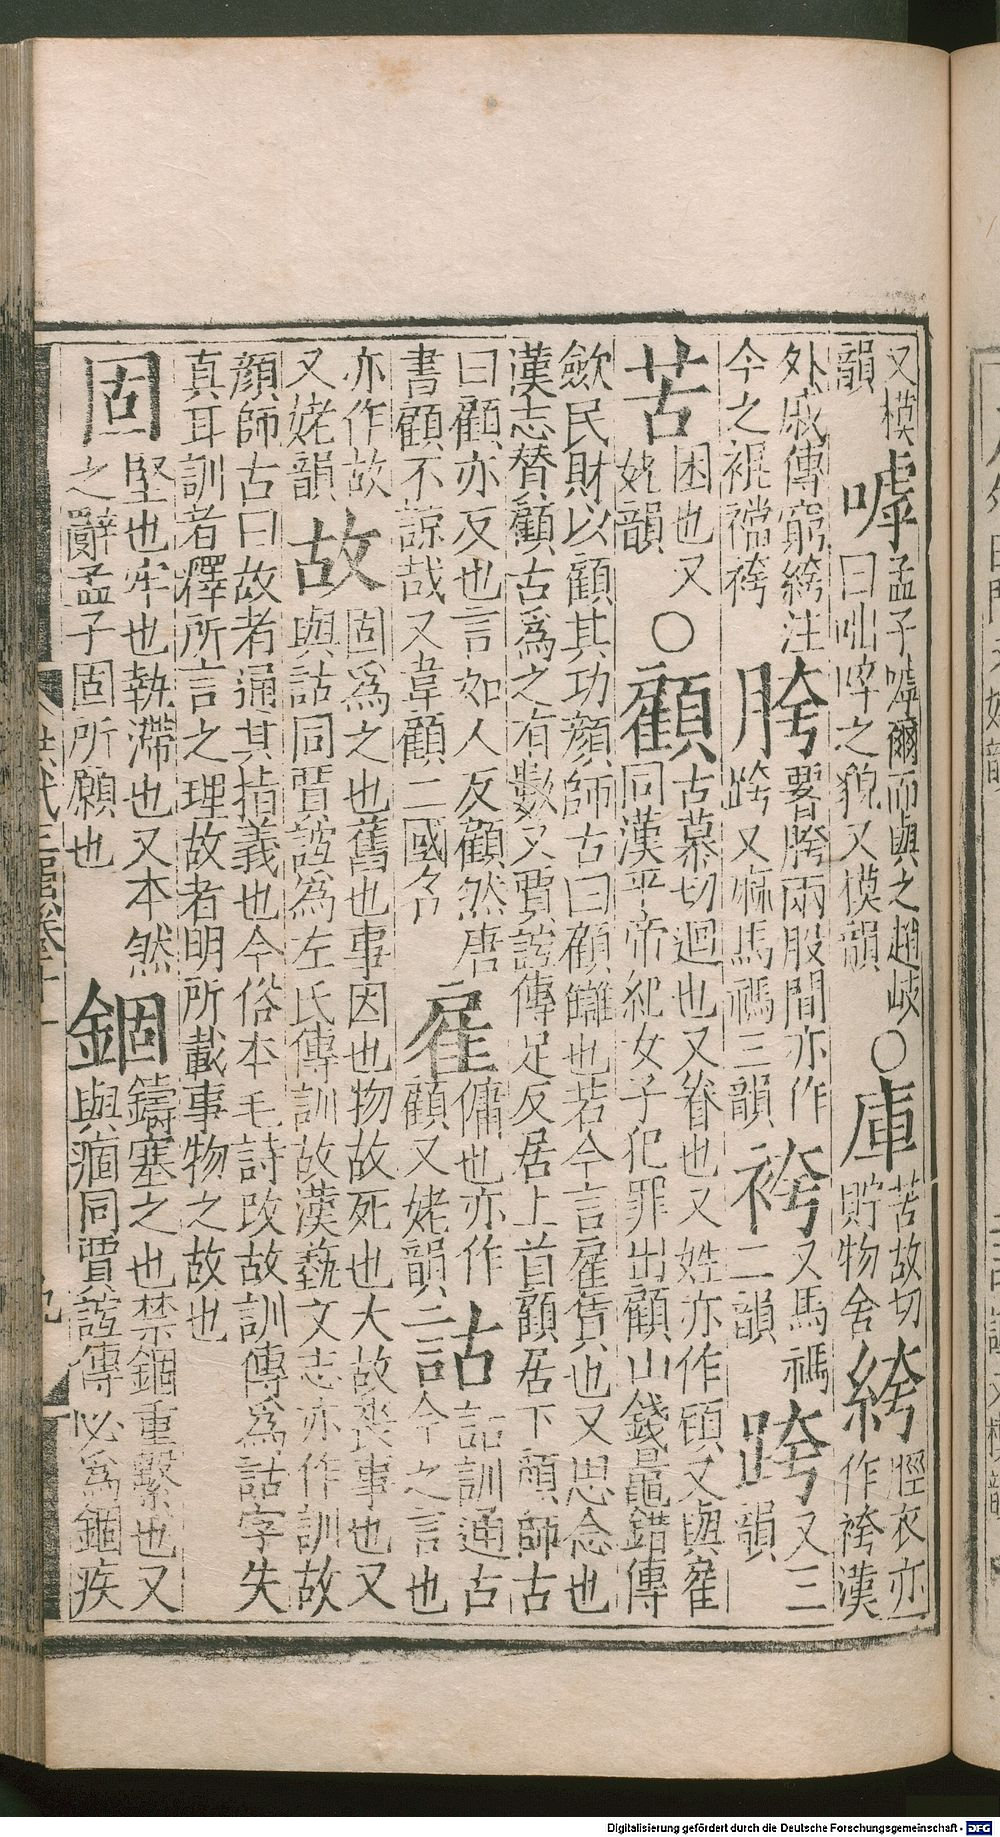 又模韻嘑孟子嘑爾而與之趙岐曰咄啐之貌又模韻○庫苦故切貯物舍絝脛衣亦作袴漢
外戚傳窮絝注今之裩襠袴胯要胯兩股閒亦作跨又麻馬禡三韻袴又馬禡二韻跨又三韻
苦困也又姥韻○顧古慕切迴也又眷也又姓亦作頋又與雇同漢平帝紀女子犯罪出顧山錢鼂錯傳
歛民財以顧其功顏師古曰顧讎也若今言雇賃也又思念也漢志贊顧古爲之有數又賈誼傳足反居上首顧居下顏師古
曰顧亦反也言如人反顧然唐書顧不諒哉又韋顧二國名雇傭也亦作顧又姥韻詁詁訓通古今之言也
亦作故又姥韻故固爲之也舊也事因也物故死也大故喪事也又與詁同賈誼為左氏傳訓故漢蓺文志亦作訓故
顏師古曰故者通其指義也今俗本毛詩改故訓傳爲詁字失真耳訓者釋所言之理故者明所載事物之故也
固堅也牢也執滯也又本然之辭孟子固所願也錮鑄塞之也禁錮重繫也又與痼同賈誼傳必爲錮疾
Digitalisierung gefördert durch die Deutsche Forschungsgemeinschaft - DFG